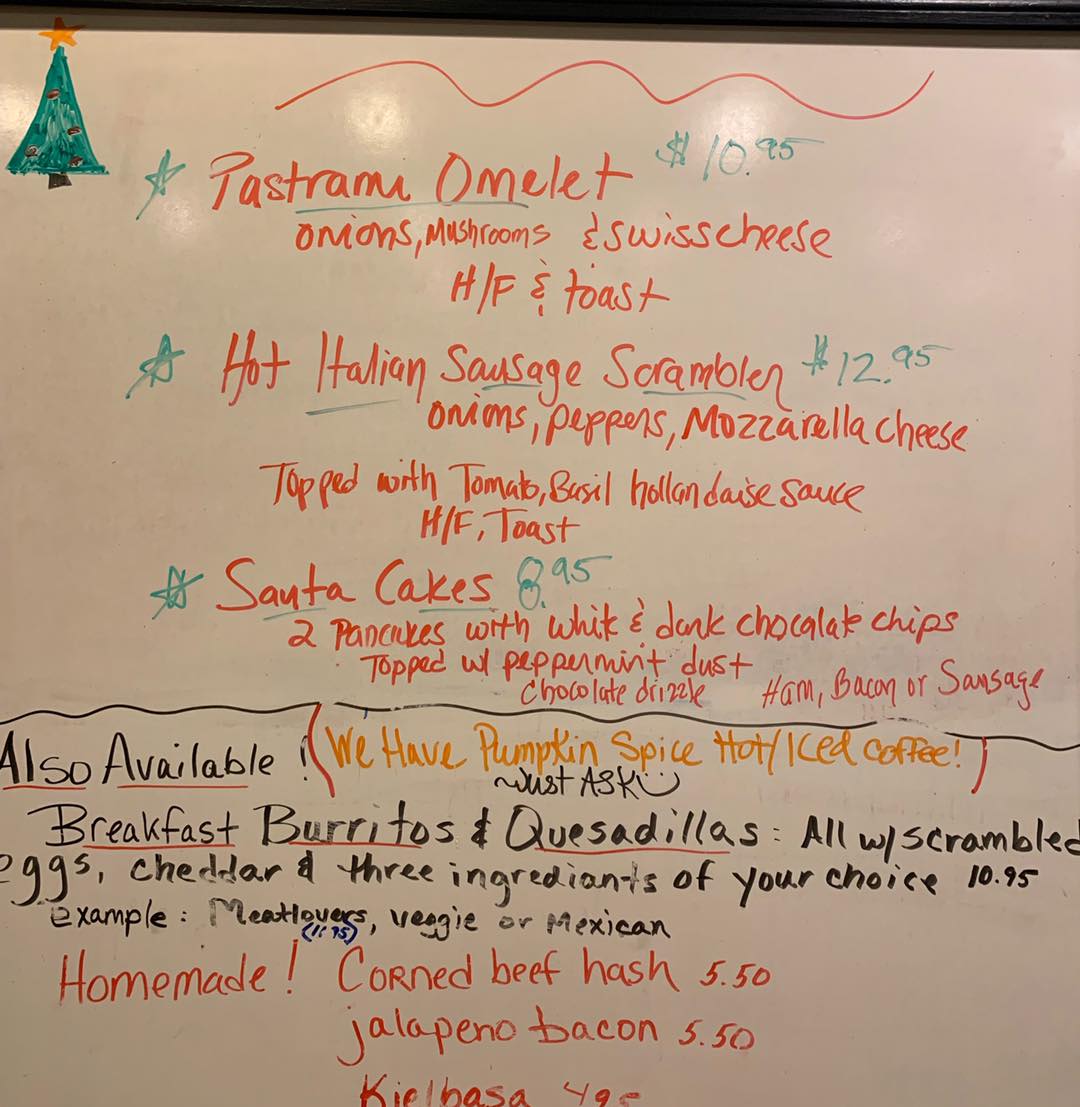 Pastrami Omelet $10.95
onions, Mushrooms & swiss cheese
H/F & toast
Hot Italian Sausage Scrambler $12.95
onions, peppers, Mozzarella cheese
Topped with Tomato, Basil hollandaise sauce
H/F, Toast
Santa Cakes 8.95
2 Pancakes with white & dark chocalate chips
Topped w/ peppermint dust
Chocolate drizzle
Ham, Bacon or Sausage
Also Available! (We Have Pumpkin Spice Hot/Iced Coffee!)
~Just ASK
Breakfast Burritos & Quesadillas: All w/scrambled
eggs, cheddar & three ingrediants of your choice 10.95
example: Meatlovers, veggie or Mexican
(11.95)
Homemade! Corned beef hash 5.50
jalapeno bacon 5.50
Kielbasa 495